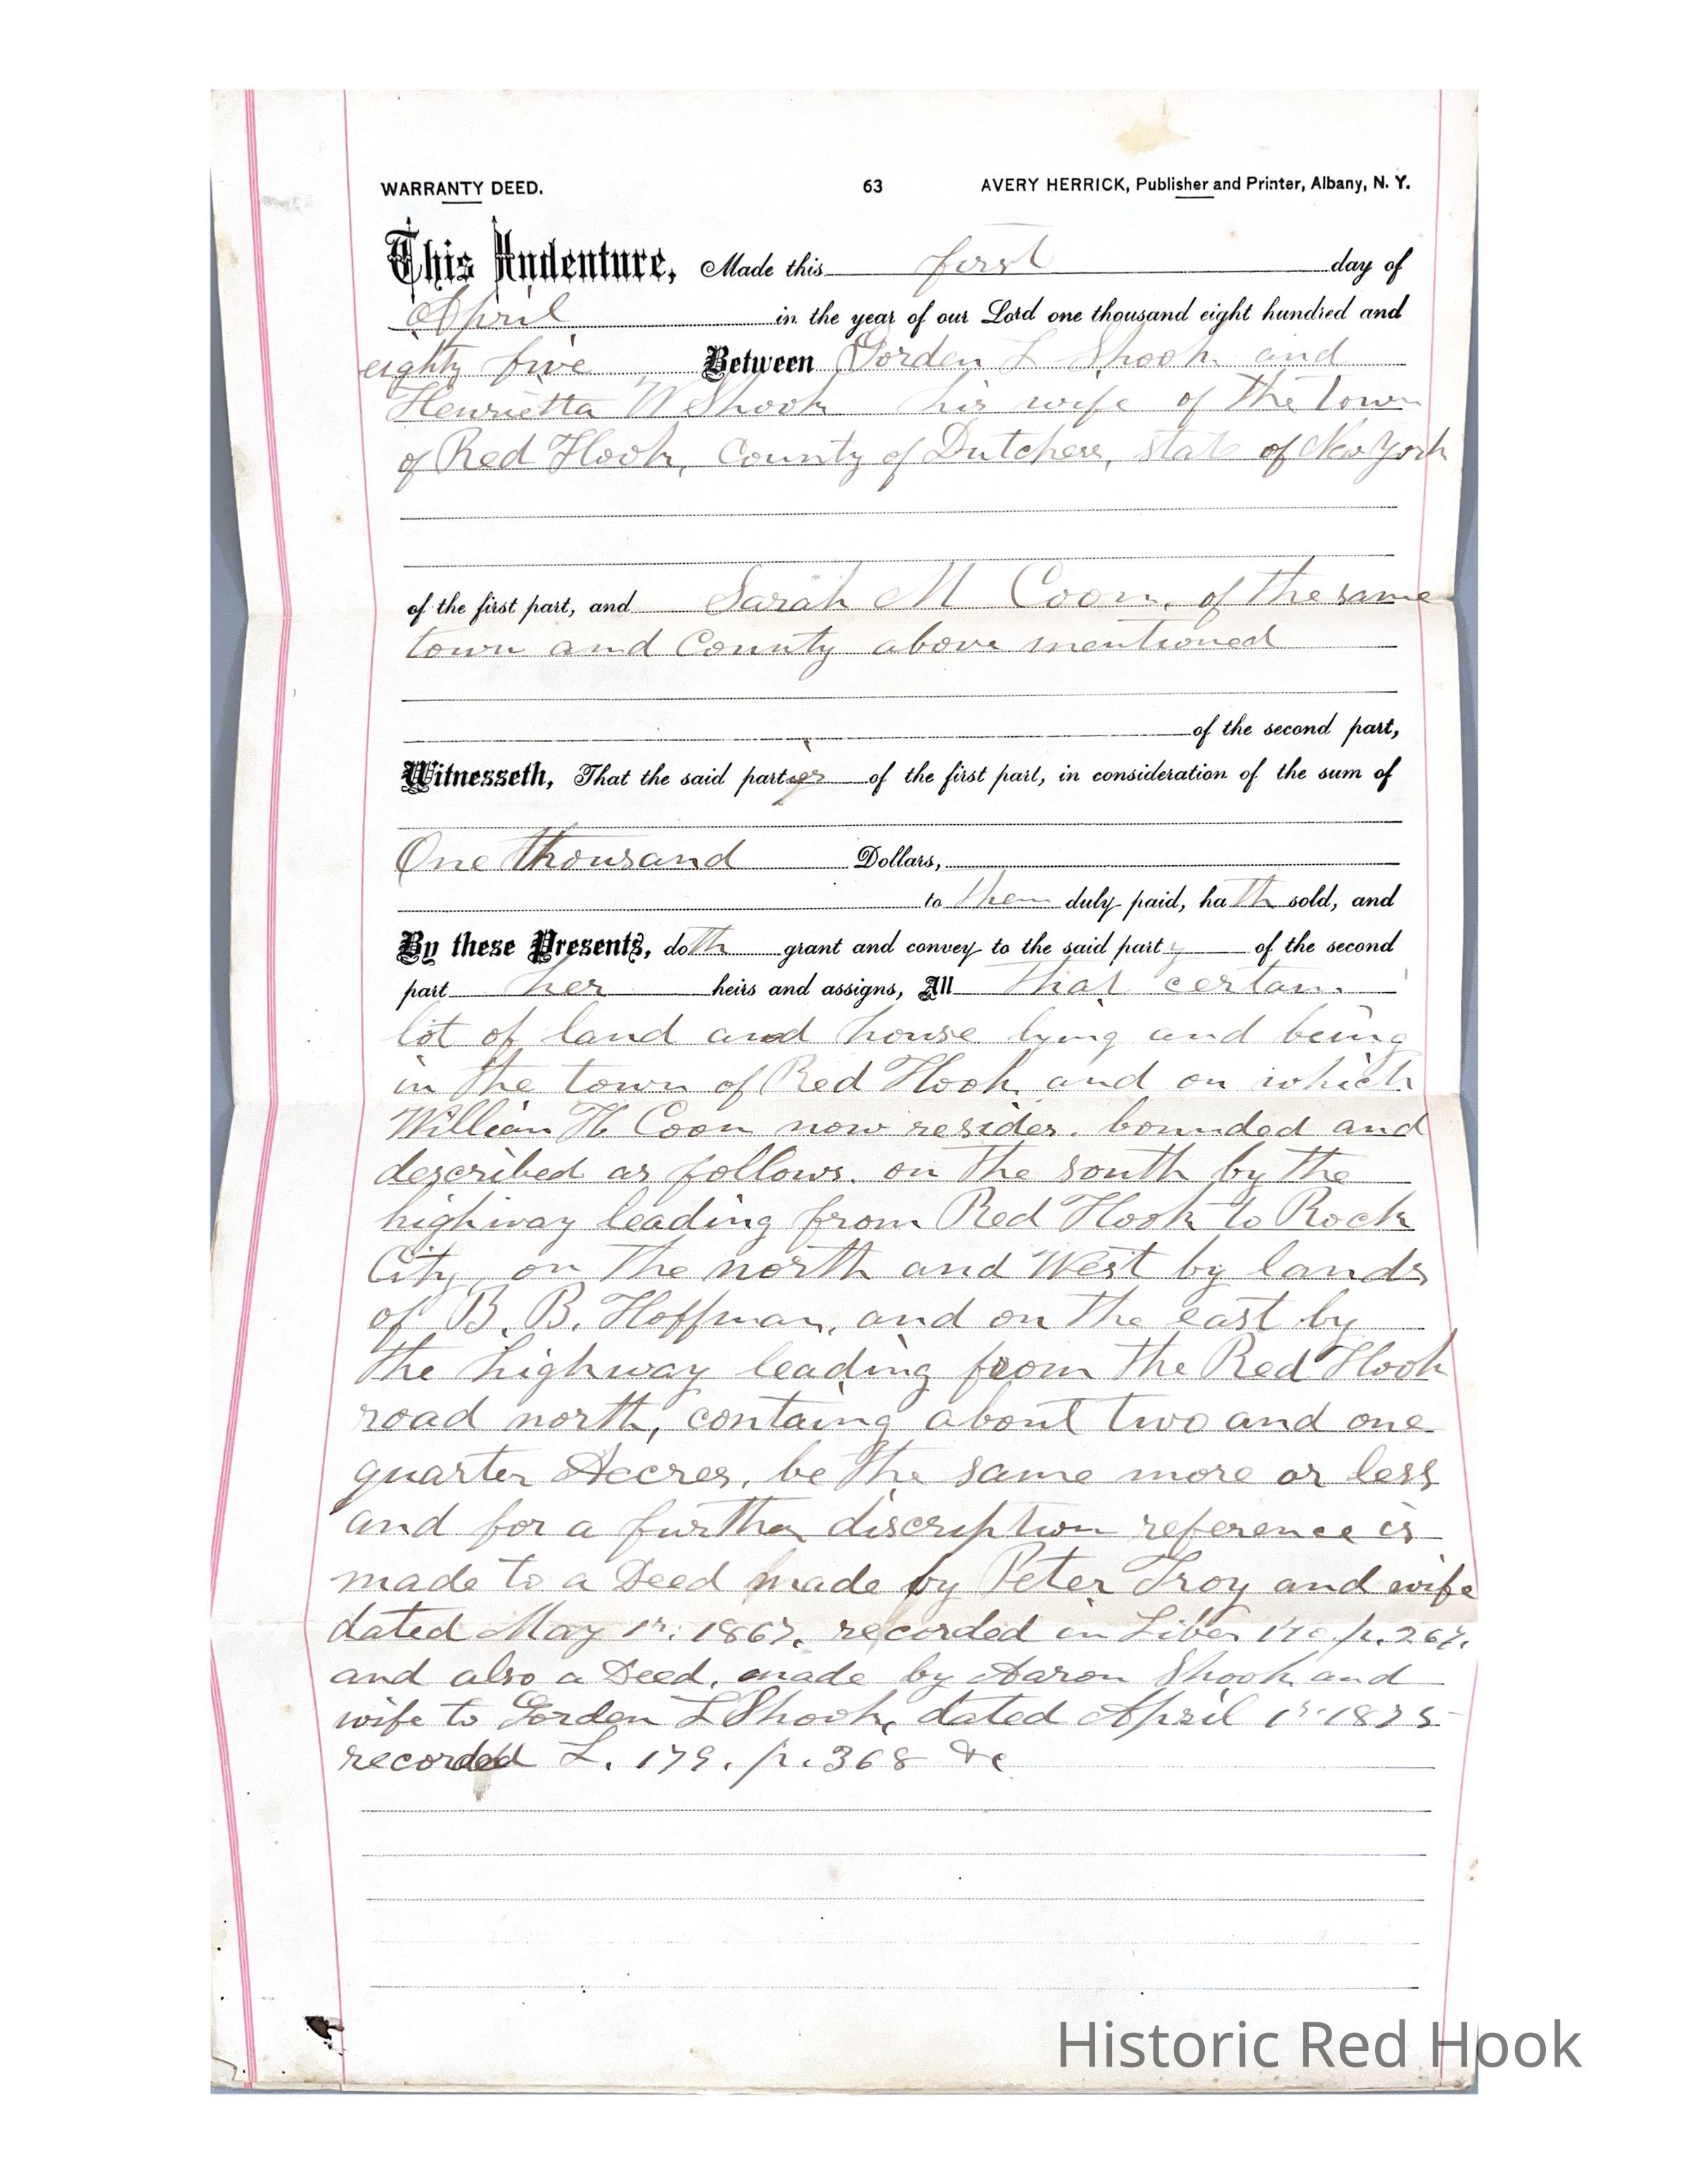 WARRANTY DEED. 63 AVERY HERRICK, Publisher and Printer, Albany, N. Y.
This Indenture, Made this first day of
April in the year of our Lord one thousand eight hundred and
eighty five Between Gorden L Shook and
Henrietta W Shook his wife of the town
of Red Hook, County of Dutchess, state of New York
of the first part, and Sarah M Coon, of the same
town and County above mentioned
of the second part,
Witnesseth, That the said parties of the first part, in consideration of the sum of
One thousand Dollars,
to them duly paid, hath sold, and
By these Presents, doth grant and convey to the said party of the second
part her heirs and assigns, All that certain
lot of land and house lying and being
in the town of Red Hook and on which
William H Coon now resides. bounded and
described as follows. on the south by the
highway leading from Red Hook to Rock
City, on the north and West by lands
of B. B. Hoffman, and on the east by
the highway leading from the Red Hook
road north, containg about two and one
quarter Accres, be the same more or less
and for a further discription reference is
made to a Deed made by Peter Troy and wife
dated May 1st. 1867, recorded in Liber p. 267.
and also a Deed, made by Aaron Shook and
wife to Gorden L Shook, dated April 1st 1875
recorded L. 179. p. 368 &c
Historic Red Hook